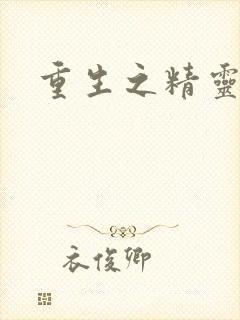 重生之精靈
衣俊卿